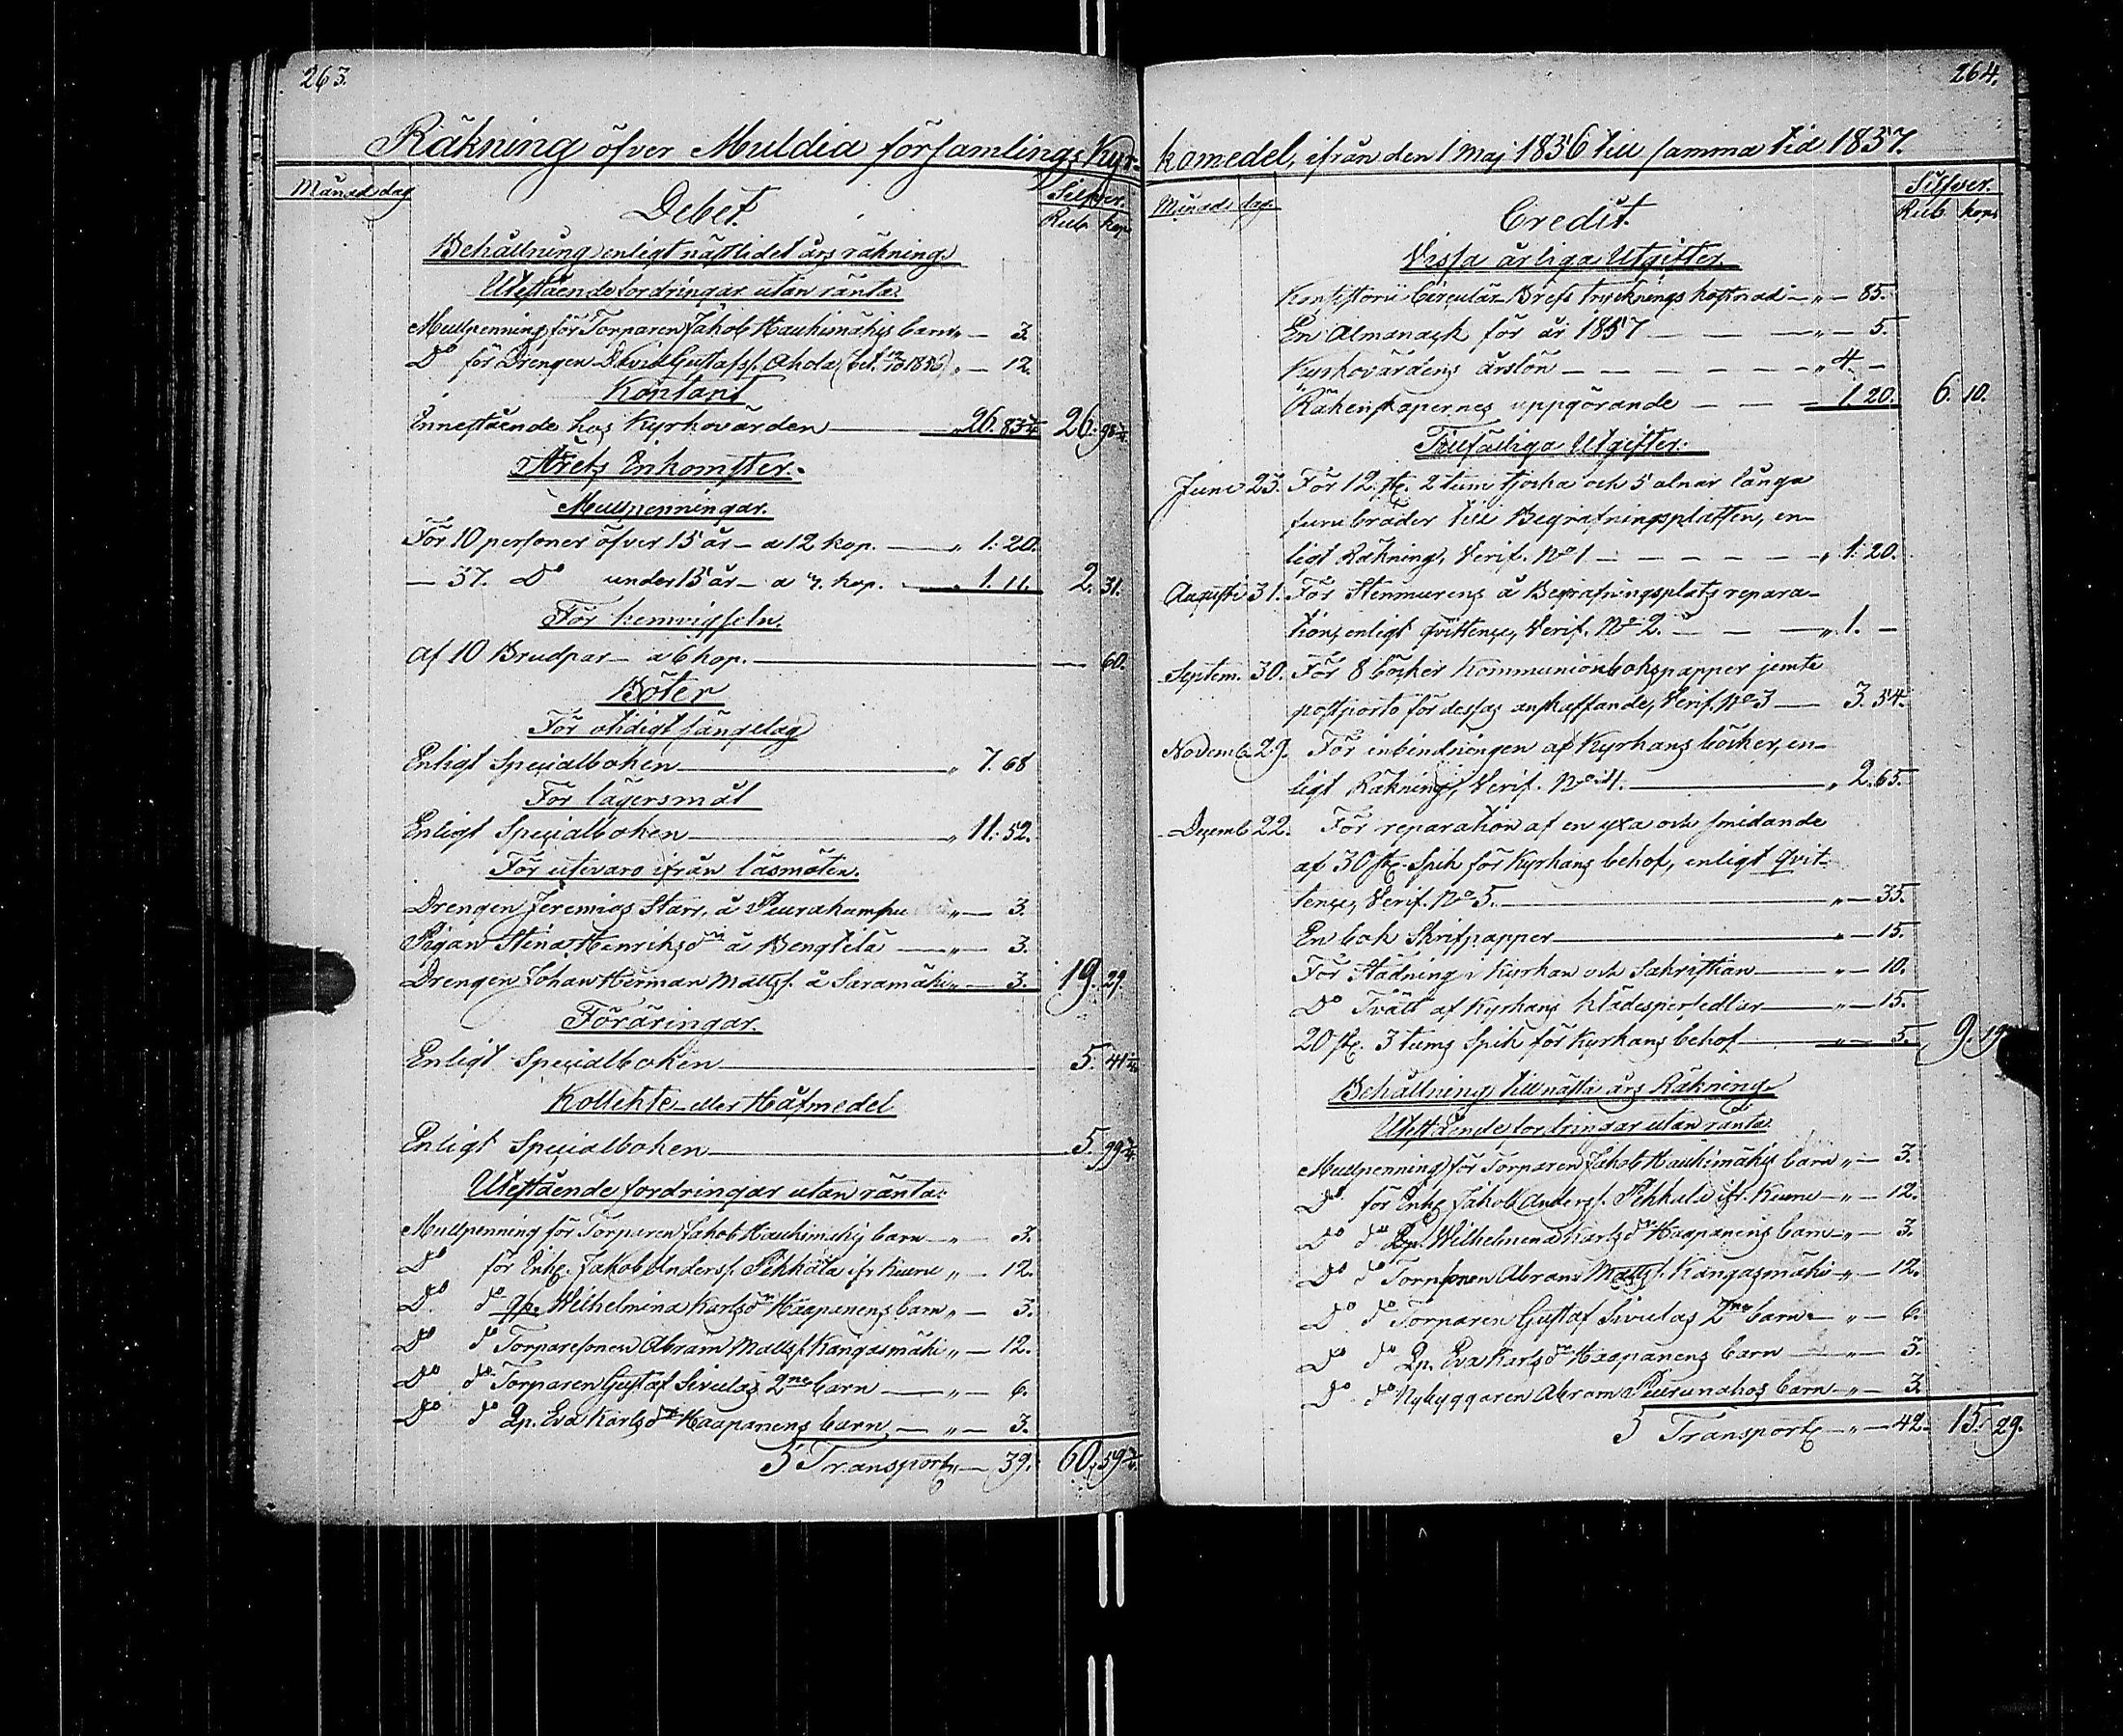 263.
Räkning öfver Muldia församlings Kyr-
Månad dag
Debet.
Silfver.
Rub. kop.
Behållning enligt nästlidet års räkning.
Utestående fordringar utan ränta.
Mullpenning för Torparen Jakob Hauhimäkis barn „ — 3.
Do för Drengen David Gustafss. Ahola (bet. 12/10 1856) „ — 12.
Kontant
Innestående hos Kyrkovärden — 26. 83 3/4 26. 98 3/4
Årets Inkomster.
Mullpenningar.
För 10 personer öfver 15 år — a 12 kop. — „ 1. 20.
— 37. Do under 15 år — a 3. kop. — „ 1. 11. 2. 31.
För hemvigseln.
af 10 Brudpar — a 6 kop. — 60.
Böter
För otidigt sängelag
Enligt Specialboken — „ 7. 68
För lägersmål
Enligt Specialboken — „ 11. 52.
För utevaro ifrån läsmöten.
Drengen Jeremias Starr, å Peurakumpu „ — 3.
Pigan Stina Henriksdr å Bengtilä — „ — 3.
Drengen Johan Herman Mattss. å Saramäki „ — 3. 19. 29.
Föräringar.
Enligt Specialboken — 5. 41 1/4
Kollekte- eller Håfmedel
Enligt Specialboken — 5. 99 3/4
Utestående fordringar utan ränta:
Mullpenning för Torparen Jakob Hauhimäkis barn — „ 3.
Do för Enkl. Jakob Anderss. Pihkala ifr. Kuru „ — 12.
Do do Qp. Wilhelmina Karlsdr Haapanens barn „ — 3.
Do do Torparesonen Abram Mattss. Kangasmäki „ — 12.
Do do Torparen Gustaf Sivulas 2ne barn — „ — 6.
Do do Qp. Eva Karlsdr Haapanens barn — „ — 3.
S Transport „ — 39. 60. 59 3/4
264.
komedel, ifrån den 1 Maj 1856 till samma tid 1857.
Månad dag
Credit.
Silfver.
Rub. kop.
Vissa årliga Utgifter.
Konsistorii Circulär Brefs trycknings kostnad — „ — 85.
En Almanack för år 1857 — „ — 5.
Kyrkovärdens årslön — „ 4. —
Räkenskapernes uppgörande — 1. 20. 6. 10.
Tillfälliga Utgifter.
Juni 23. För 12. st. 2 tum tjocka och 5 alnar långa
furubräder till Begrafningsplatsen, en-
ligt Räkning, Verif. No 1 — „ 1. 20.
Augusti 31. För Stenmurens å Begrafningsplats repara-
tion, enligt qvittence, Verif. No 2. — „ 1. —
Septem. 30. För 8 böcker Kommunionboks papper jemte
postporto för dessas anskaffande, Verif. No 3 — 3. 54.
Novemb. 29. För inbindningen af Kyrkans böcker, en-
ligt Räkning, Verif. No 4. — „ 2. 65.
Decemb. 22. För reparation af en yxa och smidande
af 30 st. Spik för Kyrkans behof, enligt qvit-
tence, Verif. No 5. — „ — 35.
En bok Skrifpapper — „ — 15.
För städning i Kyrkan och Sakristian — „ — 10.
Do Tvätt af Kyrkans klädespersedlar — „ — 15.
20 st. 3 tums Spik för Kyrkans behof — „ — 5. 9. 19
Behållning till nästa års Räkning.
Utestående fordringar utan ränta.
Mullpenning för Torparen Jakob Hauhimäkis barn „ — 3.
Do för Enkl. Jakob Anderss. Pihkala ifr. Kuru — „ — 12.
Do do Qp. Wilhelmina Karlsdr Haapanens barn „ — 3.
Do do Torpsonen Abram Mattss. Kangasmäki „ — 12.
Do do Torparen Gustaf Sivulas 2ne barn — „ — 6.
Do do Qp. Eva Karlsdr Haapanens barn — „ — 3.
Do do Nybyggaren Abram Peurunahos barn — „ — 3.
S Transport — „ — 42. 15. 29.